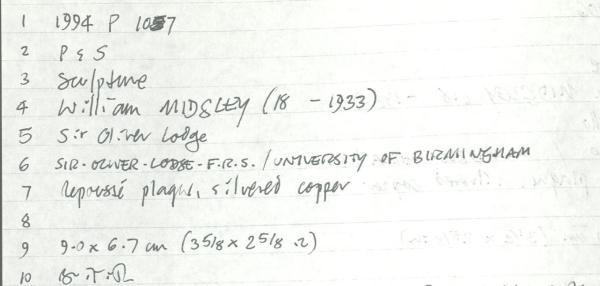 1 1994 P 1057
2 P & S
3 Sculpture
4 William MIDSLEY (18 - 1933)
5 Sir Oliver Lodge
6 SIR·OLIVER·LODGE·F.R.S. / UNIVERSITY OF BIRMINGHAM
7 Repoussé plaque, silvered copper
8
9 9.0 x 6.7 cm (3 5/8 x 2 5/8 )
10